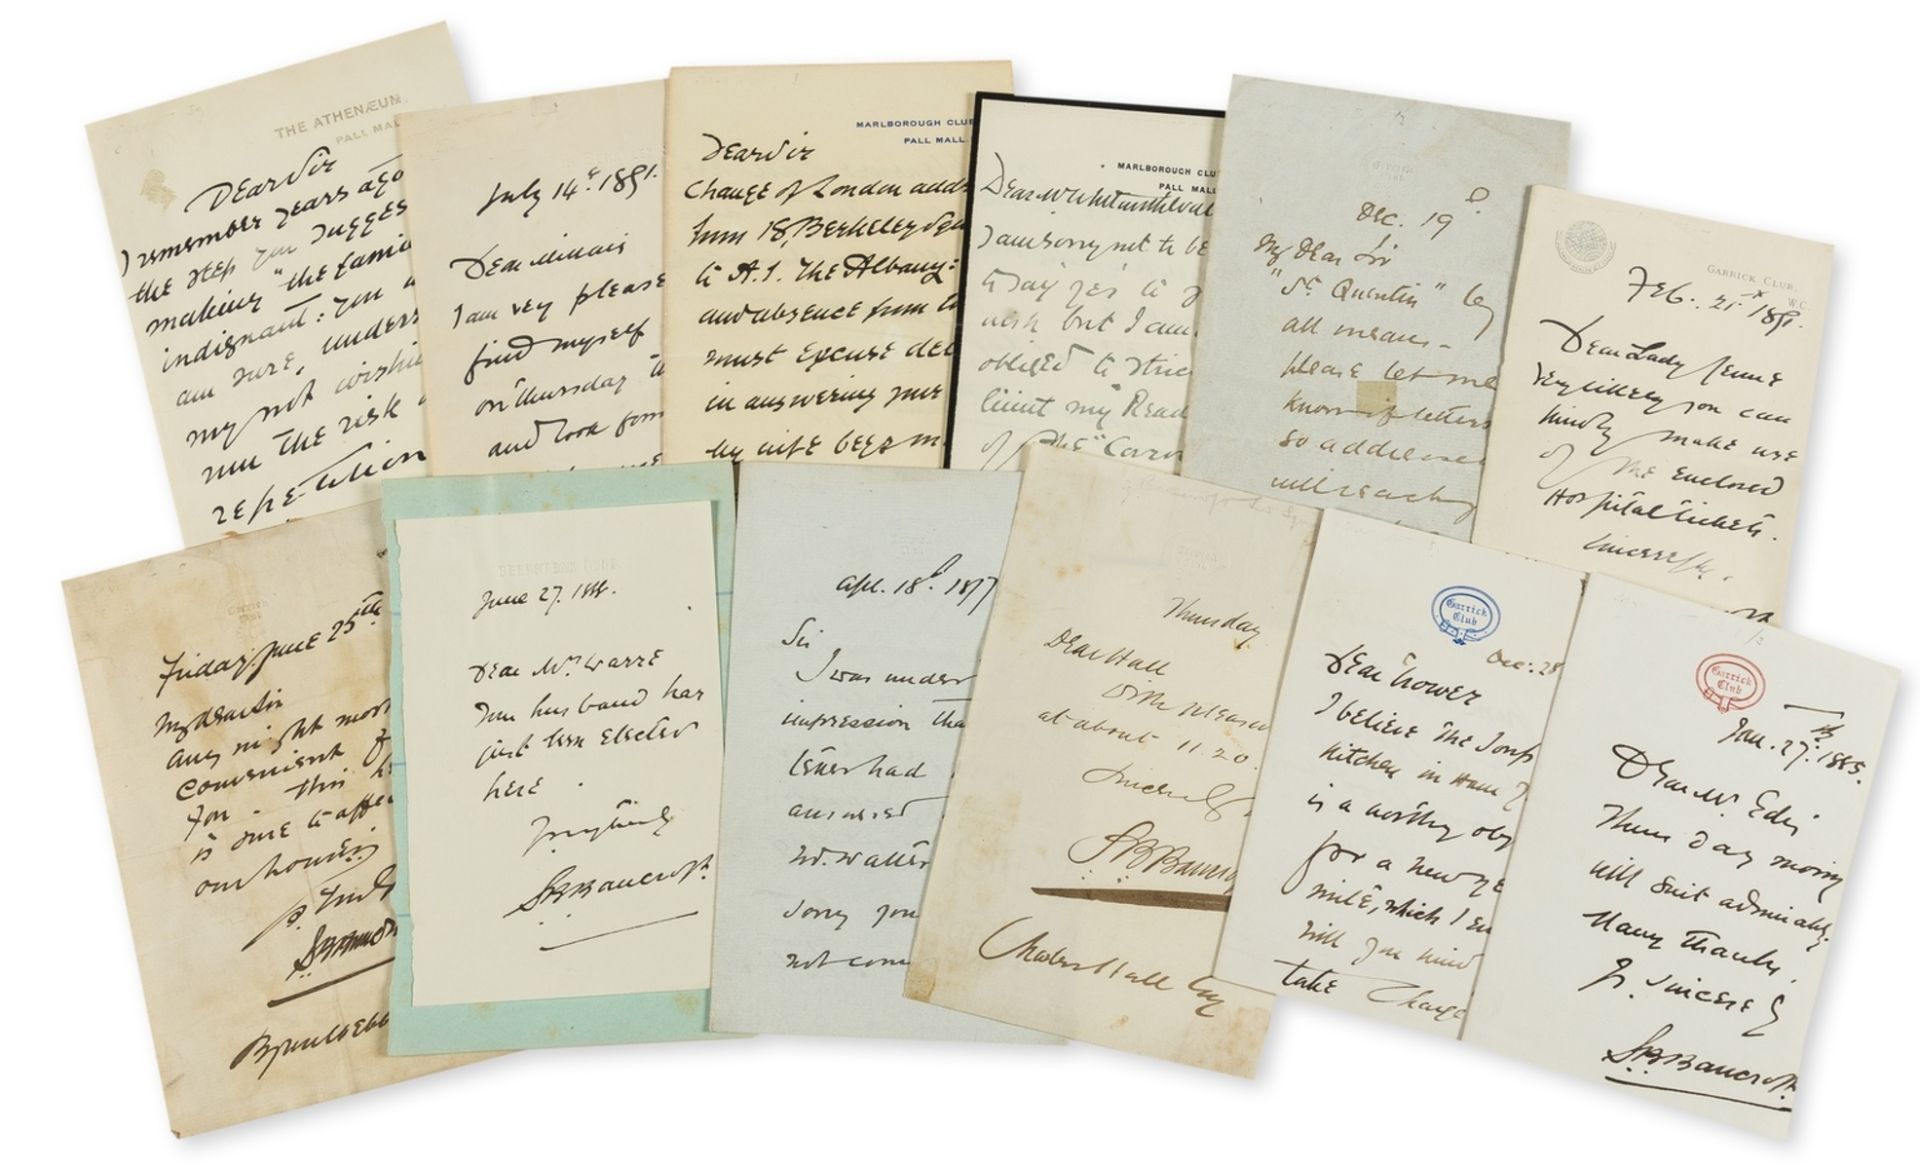 THE ATHENÆUM.
PALL MAL
Dear Sir
I remember years ago
the step you sugges
making "the famil
indignant: you
am sure, unders
my not wishi
run the risk
repetition
July 14th 1891.
Dear Millais
I am very please
find myself
on Thursday
and look forw
MARLBOROUGH CLUB
PALL MALL.
Dear Sir
Change of London addr
from 18, Berkeley Squ
to A.1. The Albany:
and absence from to
must excuse del
in answering your
My wife begs me
MARLBOROUGH CLU
PALL MAL
Dear Mr
I am sorry not to be
to say 'yes' to y
wish but I am
obliged to stric
limit my Read
of the "Caro
Garrick
Club
Dec. 19
My Dear Sir
"St. Quentin" by
all means -
please let me
know if letters
so addressed
will reach
GARRICK CLUB,
W.C.
Feb. 21st 1891.
Dear Lady Jeune
Very likely you can
kindly make use
of the enclosed
Hospital tickets.
Sincerely.
Garrick
Club
Friday. June 25th
My dear Sir
any night most
convenient
you - this
is sure to affe
our houses
Truly
SBBancroft
June 27.
Dear Mrs. Warre
Your husband has
just been elected
here.
Yrs truly
SBBancroft.
Apl. 18th. 1877
Sir
I was under
impression tha
letter had
answered
W. Walter
sorry you
not com
Garrick
Club
Thursday
Dear Hall
With pleasure
at about 11.20.
Sincerely
SBBancroft
Charles Hall Esq
Garrick
Club
Dec: 28
Dear Trower
I believe the Soup
Kitchen in Ham
is a worthy obj
for a new ye
mite, which I en
will you kind
take charge
Garrick
Club
Jan. 27th. 1885.
Dear Mr. Edis
Thursday morning
will suit admirably.
Many thanks.
Yr. sincerely
SBBancroft.